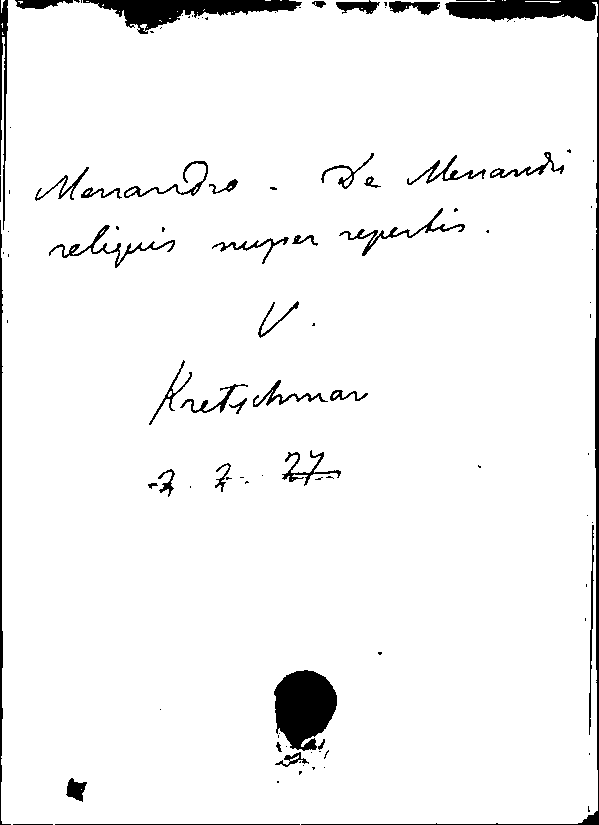 Menandro - De Menandri
reliquis nuper repertis.
V.
Kretschmar
7. 7. 27